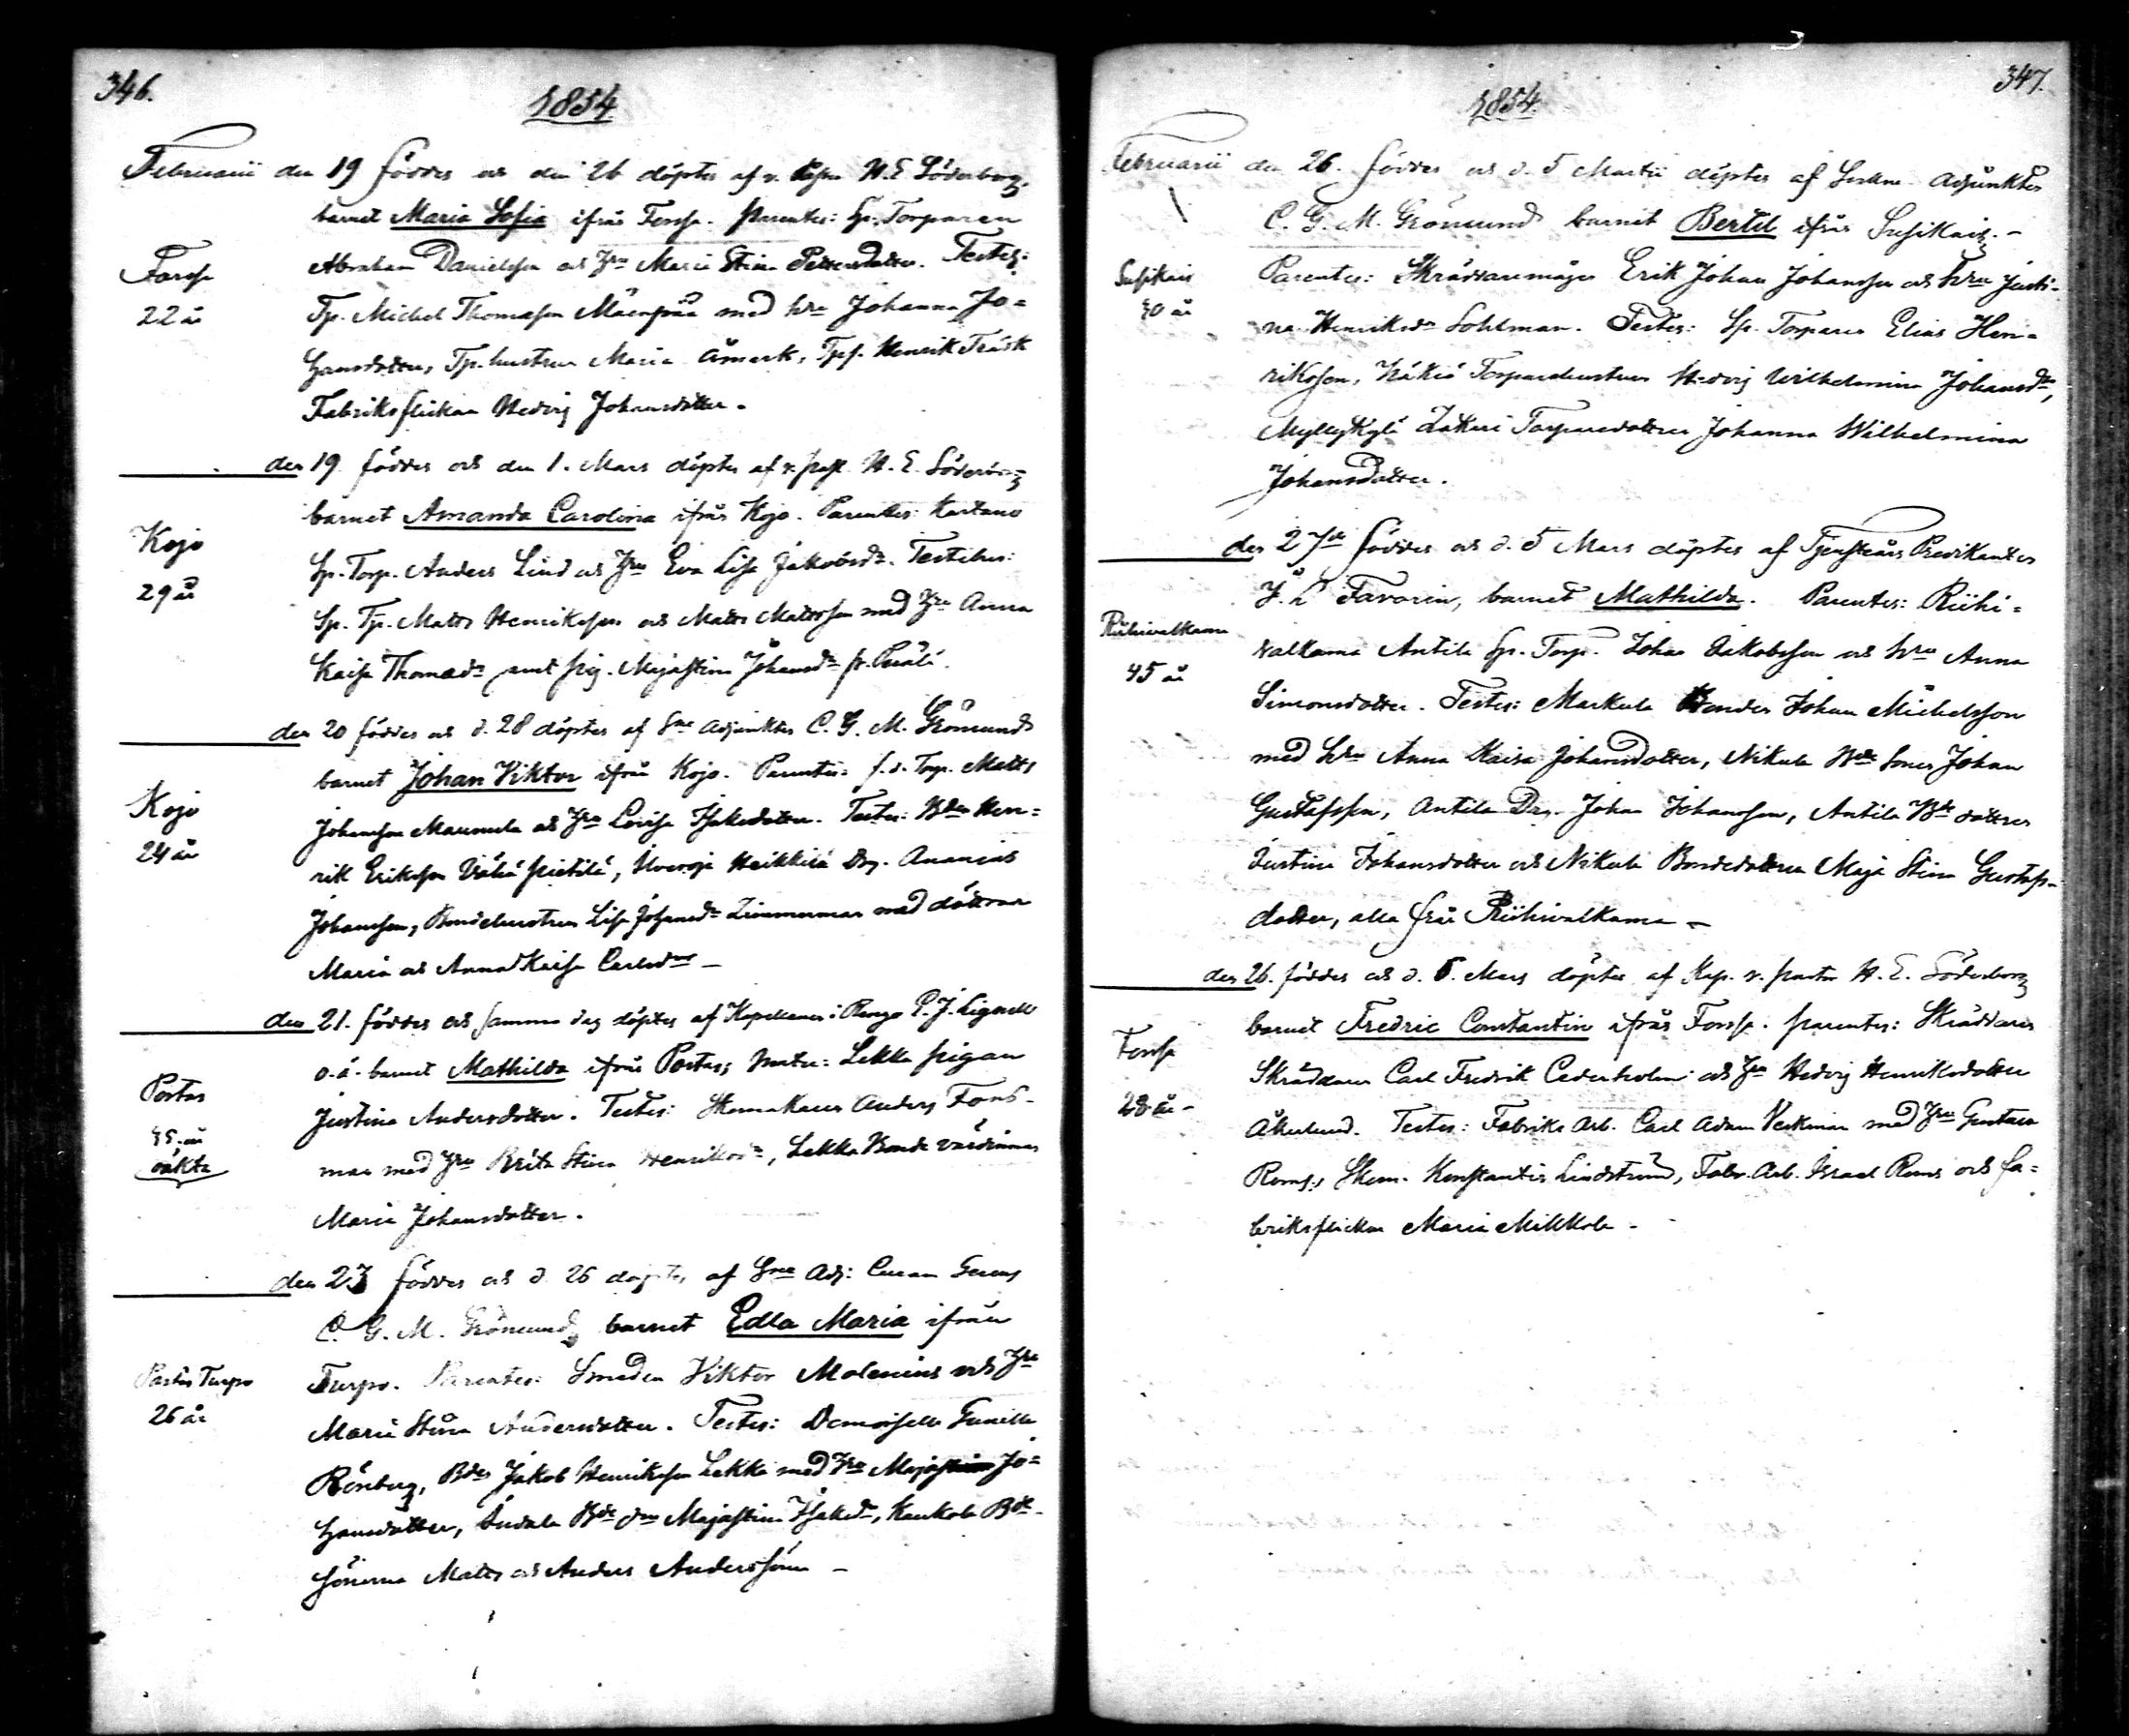 346.
1854.
Februarii den 19 föddes och den 26 döptes af v. Pastor N. E. Söderborg,
barnet Maria Sofia ifrån Forssa. Parentes: Sp. Torparen
Forssa
22 år
Abraham Danielsson och Hru Maria Stina Pettersdotter. Testes:
Tp. Michel Thomasson Mäenpää med hru Johanna Jo=
hansdotter, Tp. hustrun Maria Åmark, Henrik Träsk
Fabriksflickan Hedvig Johansdotter.
den 19 föddes och den 1. Mars döptes af v. past. N. E. Söderborg
barnet Amanda Carolina ifrån Kojo. Parentes:
Kojo
29 år
Sp. Torp. Anders Lind och Hru Eva Lisa Jakobsdr. Testibus:
Sp. Tp. Matts Henriksson och Matts Mattsson med Hru Anna
Kaisa Thomasdr samt pig. Majastina Johansdr fr.
den 20 föddes och d. 28 döptes af Sne Adjunkten C. G. M. Grönlund
barnet Johan Viktor ifrån Kojo. Parentes: f.d. Torp. Matts
Kojo
24 år
Johansson Maunula och Hru Lovisa Isaksdotter. Testes: Bdn Hen=
rik Eriksson Vähä Pietilä, Heikkilä Drg. Ananias
Johansson, Bondehustrun Lisa Johansdr Zimmerman med döttrar
Maria och Anna Kaisa
den 21. föddes och samma dag döptes af Kapellanen i Renço P. J. Lignell
o.ä. barnet Mathilda ifrån Portas; Mater: Lekka pigan
Portas
35 år
oäkta
Justina Andersdotter. Testes: Skomakaren Anders Fors-
man med Hru Brita Stina Henriksdr, Lekka Bonde värdinnan
Maria Johansdotter.
den 23 föddes och d. 26 döptes af Sne Adj: Curam Gerens
C. G. M. Grönlund barnet Edla Maria ifrån
Portas Turpo
26 år
Turpo. Parentes: Smeden Viktor Molenius och Hru
Maria Stina Andersdotter. Testes: Demoiselle Gunilla
Rönberg, Bden Jakob Henriksson Lekka med Hru Jo=
hansdotter, Bde Majastina Isaksdr, Kaukola Bde-
sönerna Matts och Anders Anderssöner
347.
1854.
Februarii den 26. föddes och d. 5 Martii döptes af Adjunkten
C. G. M. Grönlund barnet Bertel ifrån Susikais.
Susikais
30 år
Parentes: Skräddaremågen Erik Johan Johansson och hru Justi-
na Henriksdr Sohlman. Testes: Sp. Torparen Elias Hen=
riksson, Torparehustrun Hedvig Wilhelmina Johansdr,
Myllykylä Torparedottren Johanna Wilhelmina
Johansdotter.
den 27de föddes och d. 5 Mars döptes af Tjensteårs Predikanten
Favorin, barnet Mathilda. Parentes: Riihi=
Riihivalkama
45 år
valkama Antila Sp. Torp. Johan Jakobsson och hru Anna
Simonsdotter. Testes: Markula Bonden Johan Michelsson
med hru Anna Kaisa Johansdotter, Nikula Bde Sonen Johan
Gustafsson, Antila Drg. Johan Johansson, Antila Bde dottren
Justina Johansdotter och Nikula Bondedottren Maja Stina Gustafs-
dotter, alla från Riihivalkama
den 26. föddes och d. 5. Mars döptes af Kap. v. pastor N. E. Söderborg
barnet Fredric Constantin ifrån Forssa. Parentes: Skräddaren
Forssa
28 år
Skräddaren Carl Fredrik Cederholm och Hru Hedvig Henriksdotter
Åkerlund. Testes: Fabriks Arb. Carl Adam Veckman med Hru Gustava
Roms, Skom. Konstantin Lindström, Fabr. Arb. Israel Roms och fa=
briksflickan Maria Mikkola.